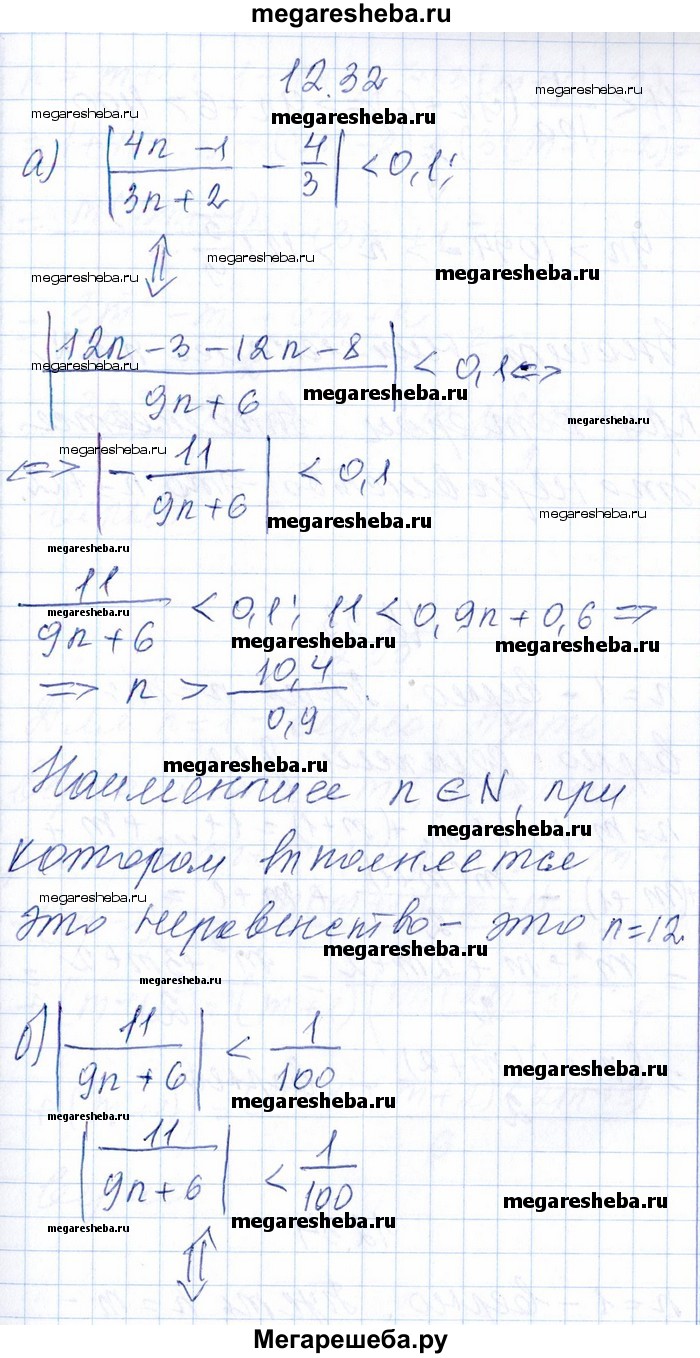 megaresheba.ru
12.32
megaresheba.ru
megaresheba.ru
megaresheba.ru
а) |(4n - 1)/(3n + 2) - 4/3| < 0,1;
⇕
megaresheba.ru
megaresheba.ru
megaresheba.ru
|(12n - 3 - 12n - 8)/(9n + 6)| < 0,1 <=>
megaresheba.ru
megaresheba.ru
megaresheba.ru
<=> |- 11/(9n + 6)| < 0,1
megaresheba.ru
megaresheba.ru
megaresheba.ru
megaresheba.ru
11/(9n + 6) < 0,1; 11 < 0,9n + 0,6 =>
megaresheba.ru
megaresheba.ru
megaresheba.ru
=> n > 10,4/0,9.
megaresheba.ru
Наименьшее n ∈ N, при
megaresheba.ru
котором вполняется
megaresheba.ru
это неравенство - это n = 12.
megaresheba.ru
megaresheba.ru
б) |11/(9n + 6)| < 1/100
megaresheba.ru
megaresheba.ru
megaresheba.ru
|11/(9n + 6)| < 1/100
megaresheba.ru
megaresheba.ru
megaresheba.ru
⇕
Мегарешеба.ру